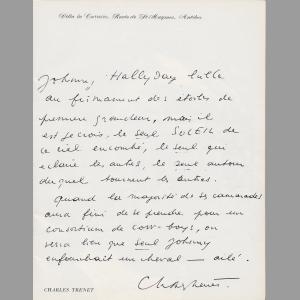 Villa la Carrière, Route de St Raymond, Antibes
Johnny Hallyday brille
au firmament des étoiles de
première grandeur, mais il
est je crois, le seul SOLEIL de
ce ciel encombré, le seul qui
éclaire les autres, le seul autour
duquel tournent les autres.
Quand la majorité de ses camarades
aura fini de se prendre pour un
consortium de cow-boys, on
verra bien que seul Johnny
enfourchait un cheval — ailé.
CHARLES TRENET
Charles Trenet